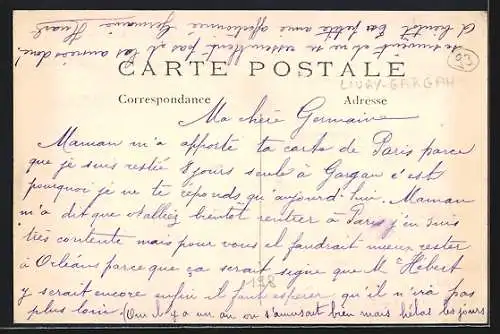 CARTE POSTALE
LIVRY-GARGAN
93
Correspondance
Adresse
Ma chère Germaine
Maman m'a apporté ta carte de Paris parce
que je suis restée 8 jours seule à Gargan c'est
pourquoi je ne te réponds qu'aujourd'hui. Maman
m'a dit que alliez bientôt rentrer à Paris j'en suis
très contente mais pour vous il faudrait mieux rester
à Orléans parce que ça serait signe que Mr Hébert
y serait encore enfin il faut espérer qu'il n'ira pas
plus loin (Oui il y a un an on s'amusait bien mais hélas les jours
198
se suivent et ne se ressemblent pas
A bientôt ta petite amie affectionnée Germaine